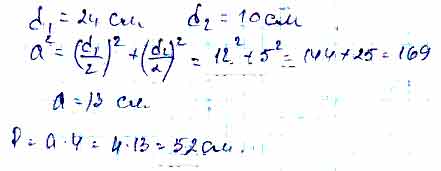 d₁ = 24 см d₂ = 10 см
a² = (d₁/2)² + (d₂/2)² = 12² + 5² = 144 + 25 = 169
a = 13 см.
P = a · 4 = 4 · 13 = 52 см.